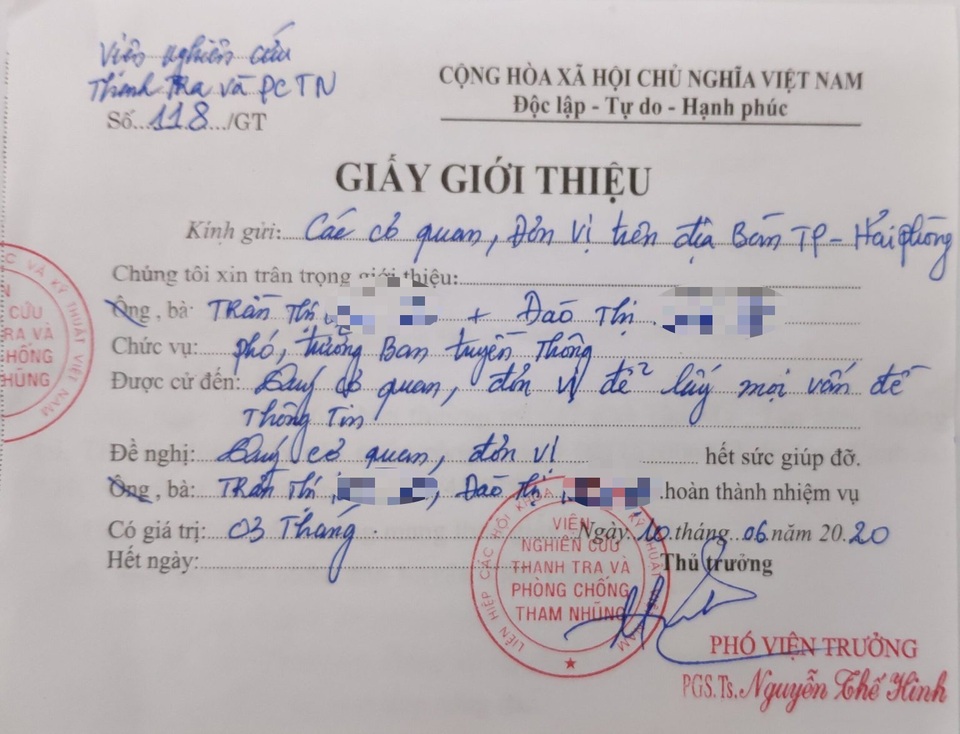 Viện nghiên cứu
Thanh Tra và PCTN
Số...118.../GT
CỘNG HÒA XÃ HỘI CHỦ NGHĨA VIỆT NAM
Độc lập - Tự do - Hạnh phúc
GIẤY GIỚI THIỆU
Kính gửi: Các cơ quan, Đơn vị trên địa Bàn TP - Hải phòng
Chúng tôi xin trân trọng giới thiệu:
Ông, bà: Trần Thị + Đào Thị
Chức vụ: phó, trưởng Ban truyền Thông
Được cử đến: Quý cơ quan, đơn vị để lấy mọi vấn đề
Thông Tin
Đề nghị: Quý cơ quan, đơn vị hết sức giúp đỡ.
Ông, bà: Trần Thị, Đào Thị hoàn thành nhiệm vụ
Có giá trị: 03 Tháng
Ngày 10 tháng 06 năm 2020
Hết ngày:
Thủ trưởng
LIÊN HIỆP CÁC HỘI KHOA KỸ THUẬT NAM
VIỆN
NGHIÊN CỨU
THANH TRA VÀ
PHÒNG CHỐNG
THAM NHŨNG
PHÓ VIỆN TRƯỞNG
PGS.Ts. Nguyễn Thế Hinh
C VÀ KỸ THUẬT VIỆT NAM
N
CỨU
RA VÀ
HỐNG
HŨNG